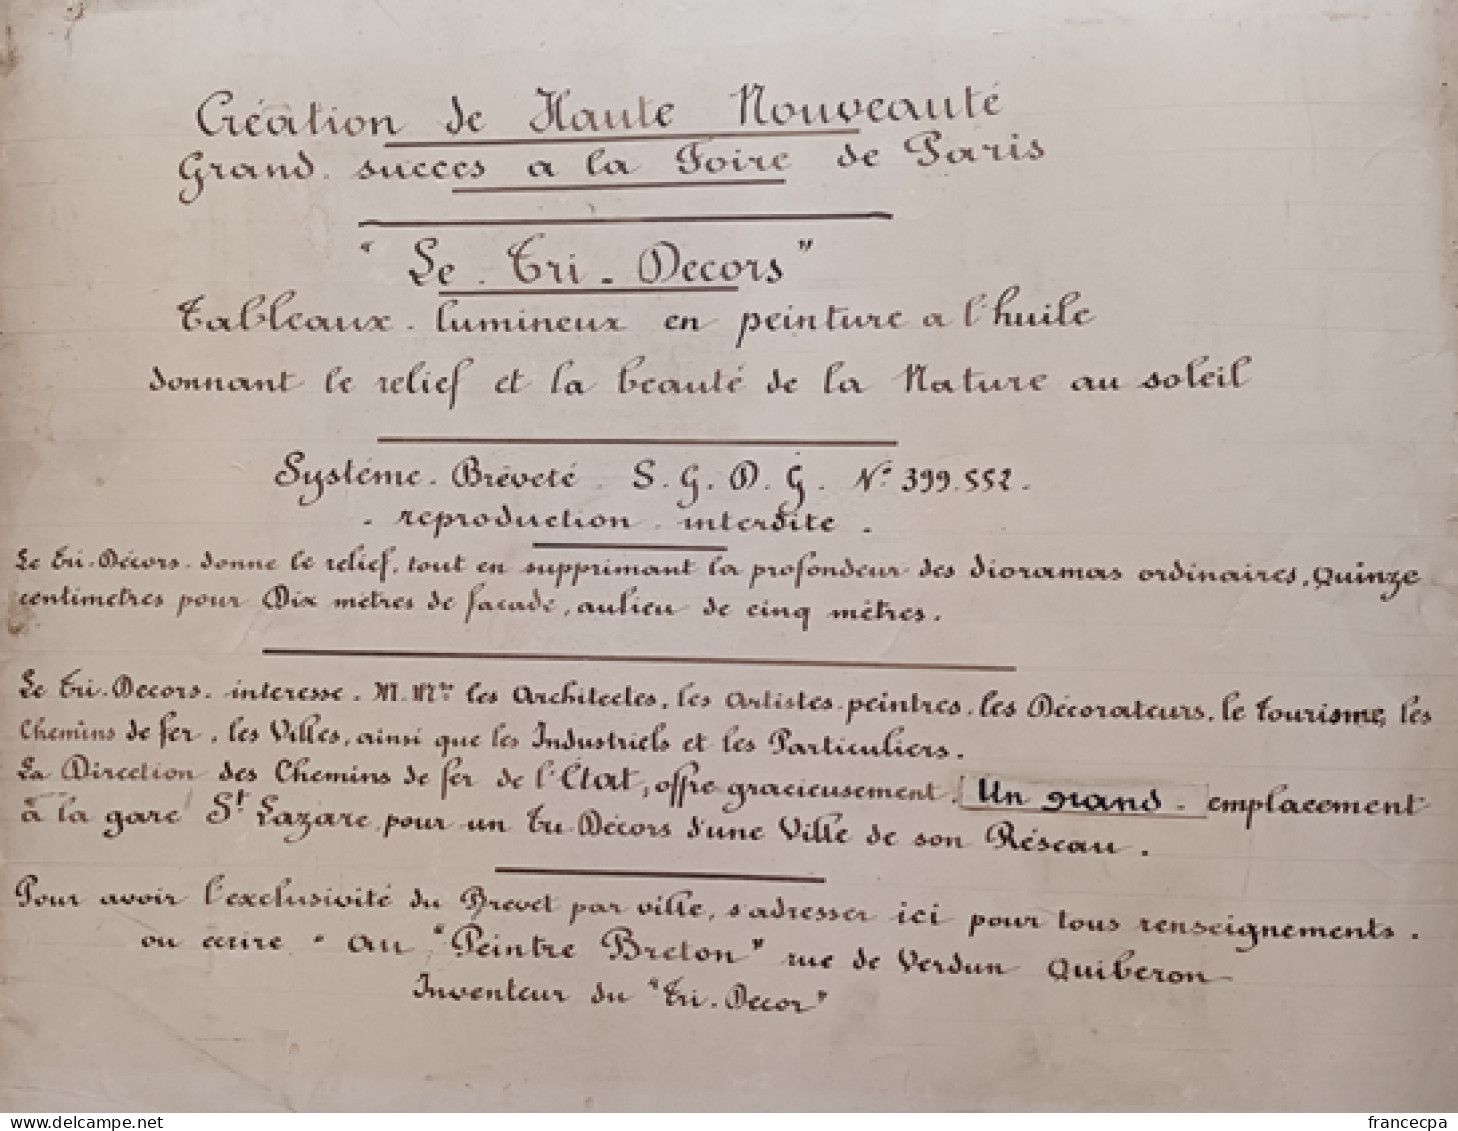 Création de Haute Nouveauté
Grand. succès a la Foire de Paris
"Le. Tri. Decors"
Tableaux. lumineux en peinture a l'huile
donnant le relief et la beauté de la Nature au soleil
Systéme. Bréveté. S.G.D.G. N° 399.552.
. reproduction. interdite.
Le Tri-Décors. donne le relief, tout en supprimant la profondeur des dioramas ordinaires, Quinze
centimetres pour Dix mètres de facade, aulieu de cinq mètres.
Le Tri-Decors. interesse. M.Mrs les Architectes, les Artistes-peintres. les Décorateurs. le tourisme, les
Chemins de fer, les Villes, ainsi que les Industriels et les Particuliers.
La Direction des Chemins de fer de l'Etat, offre gracieusement. Un grand. emplacement
à la gare St Lazare pour un Tri-Décors d'une Ville de son Réseau.
Pour avoir l'exclusivité du Brevet par ville, s'adresser ici pour tous renseignements.
ou ecrire. au "Peintre Breton" rue de Verdun Quiberon
Inventeur du "Tri-Decor"
delcampe.net
francecpa